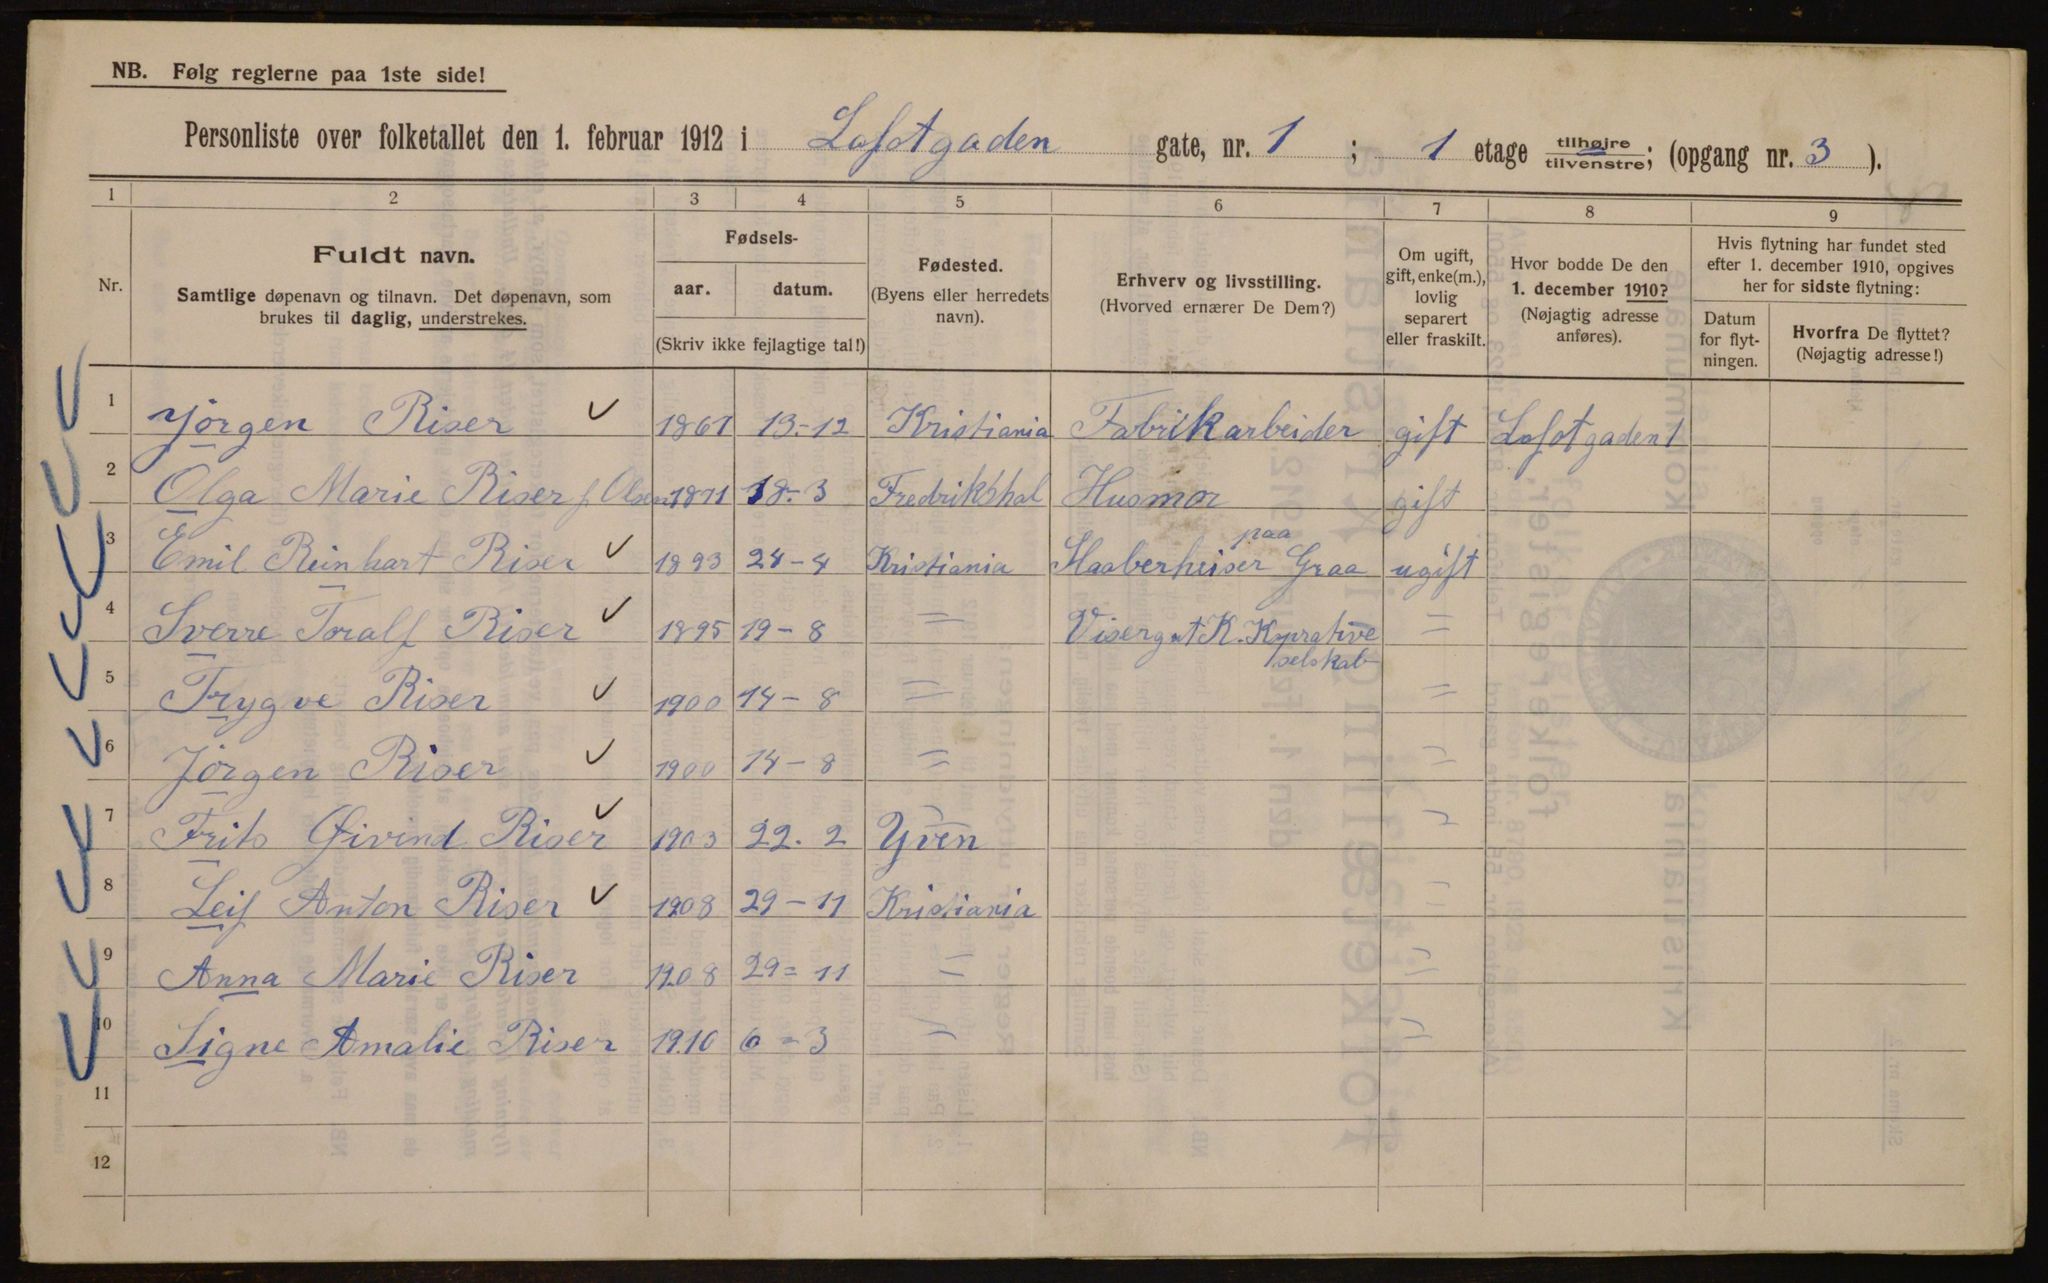 NB. Følg reglerne paa 1ste side!
Personliste over folketallet den 1. februar 1912 i Lofotgaden gate, nr. 1 ; 1 etage tilhøjre/tilvenstre; (opgang nr. 3 ).
1 2 3 4 5 6 7 8 9
Nr.
Fuldt navn.
Samtlige døpenavn og tilnavn. Det døpenavn, som
brukes til daglig, understrekes.
Fødsels-
aar. datum.
(Skriv ikke fejlagtige tal!)
Fødested.
(Byens eller herredets
navn).
Erhverv og livsstilling.
(Hvorved ernærer De Dem?)
Om ugift,
gift, enke(m.),
lovlig
separert
eller fraskilt.
Hvor bodde De den
1. december 1910?
(Nøjagtig adresse
anføres).
Hvis flytning har fundet sted
efter 1. december 1910, opgives
her for sidste flytning:
Datum
for flyt-
ningen.
Hvorfra De flyttet?
(Nøjagtig adresse!)
1 Jørgen Riser 1861 13-12 Kristiania Fabrikarbeider gift Lofotgaden 1
2 Olga Marie Riser f. Olsen 1871 18-3 Fredrikshal Husmor gift
3 Emil Reinhart Riser 1893 24-4 Kristiania paa Graa ugift
4 Sverre Toralf Riser 1895 19-8 = Visergut K. selskab =
5 Trygve Riser 1900 14-8 = =
6 Jørgen Riser 1900 14-8 = =
7 Frits Øivind Riser 1903 22.2 =
8 Leif Anton Riser 1908 29-11 Kristiania =
9 Anna Marie Riser 1908 29=11 = =
10 Signe Amalie Riser 1910 6=3 = =
11
12